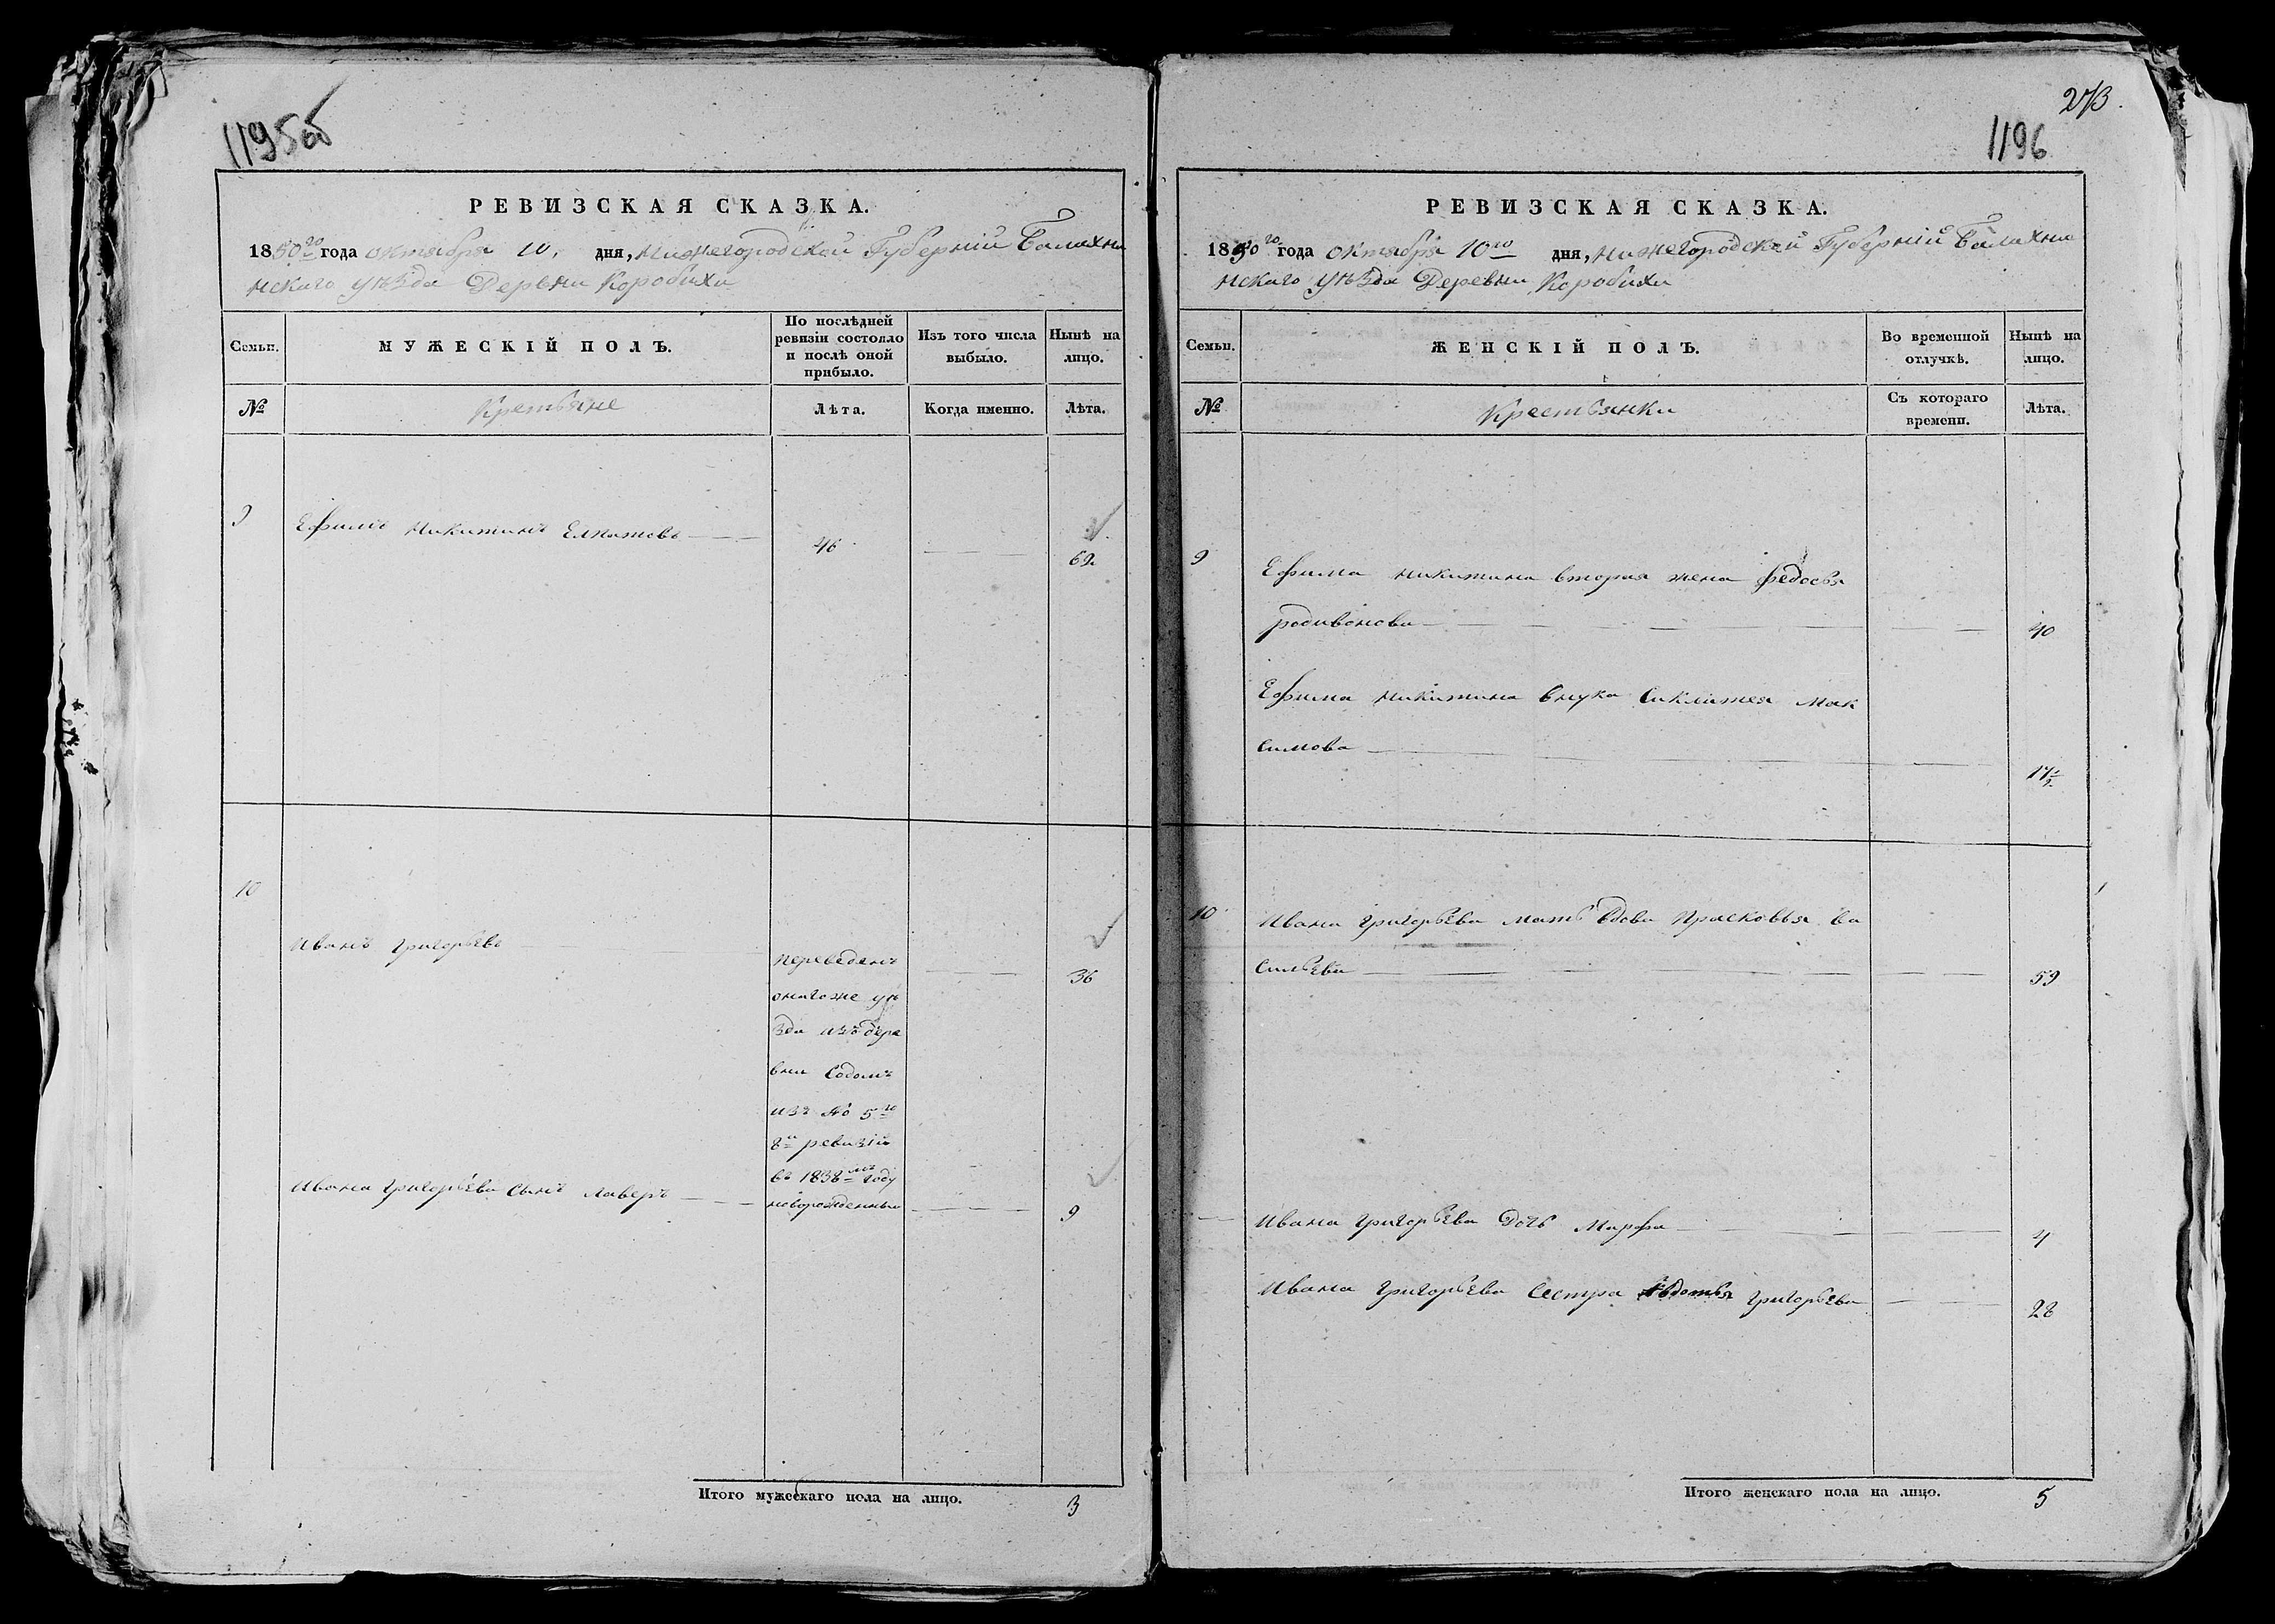 1195об
РЕВИЗСКАЯ СКАЗКА.
1850го года октября 10. дня, Нижегородской Губерній Балахни
нскаго уѣзда Дервни Коробихи
Семьи.
МУЖЕСКІЙ ПОЛЪ.
По послѣдней
ревизіи состояло
и послѣ оной
прибыло.
Изъ того числа
выбыло.
Нынѣ на
лицо.
№
Крестьяне
Лѣта.
Когда именно.
Лѣта.
9
Ефимъ никитинъ Елпатовъ
46
69
10
Иванъ григорьевъ
переведенъ
36
онагоже уѣ
зда изъ дере
вни Содомъ
изъ № 5го
8й ревизій
въ 1838мъ году
Ивана григорьева сынъ лаверъ
новорожденный
9
Итого мужескаго пола на лицо.
3
273.
1196
РЕВИЗСКАЯ СКАЗКА.
1850го года октября 10го дня, Нижегородской Губерній Балахни
нскаго уѣзда Деревни Коробихи
Семьи.
ЖЕНСКІЙ ПОЛЪ.
Во временной
отлучкѣ.
Нынѣ на
лицо.
№
Крестьянки
Съ котораго
времени.
Лѣта.
9
Ефима никитина вторая жена федосья
родивонова
40
Ефима никитина внука Сиклитея Мак
симова
17½
10
Ивана григорьева мать вдова Прасковья ва
сильева
59
Ивана григорьева дочь Марфа
4
Ивана григорьева сестра Авдотья григорьева
28
Итого женскаго пола на лицо.
5